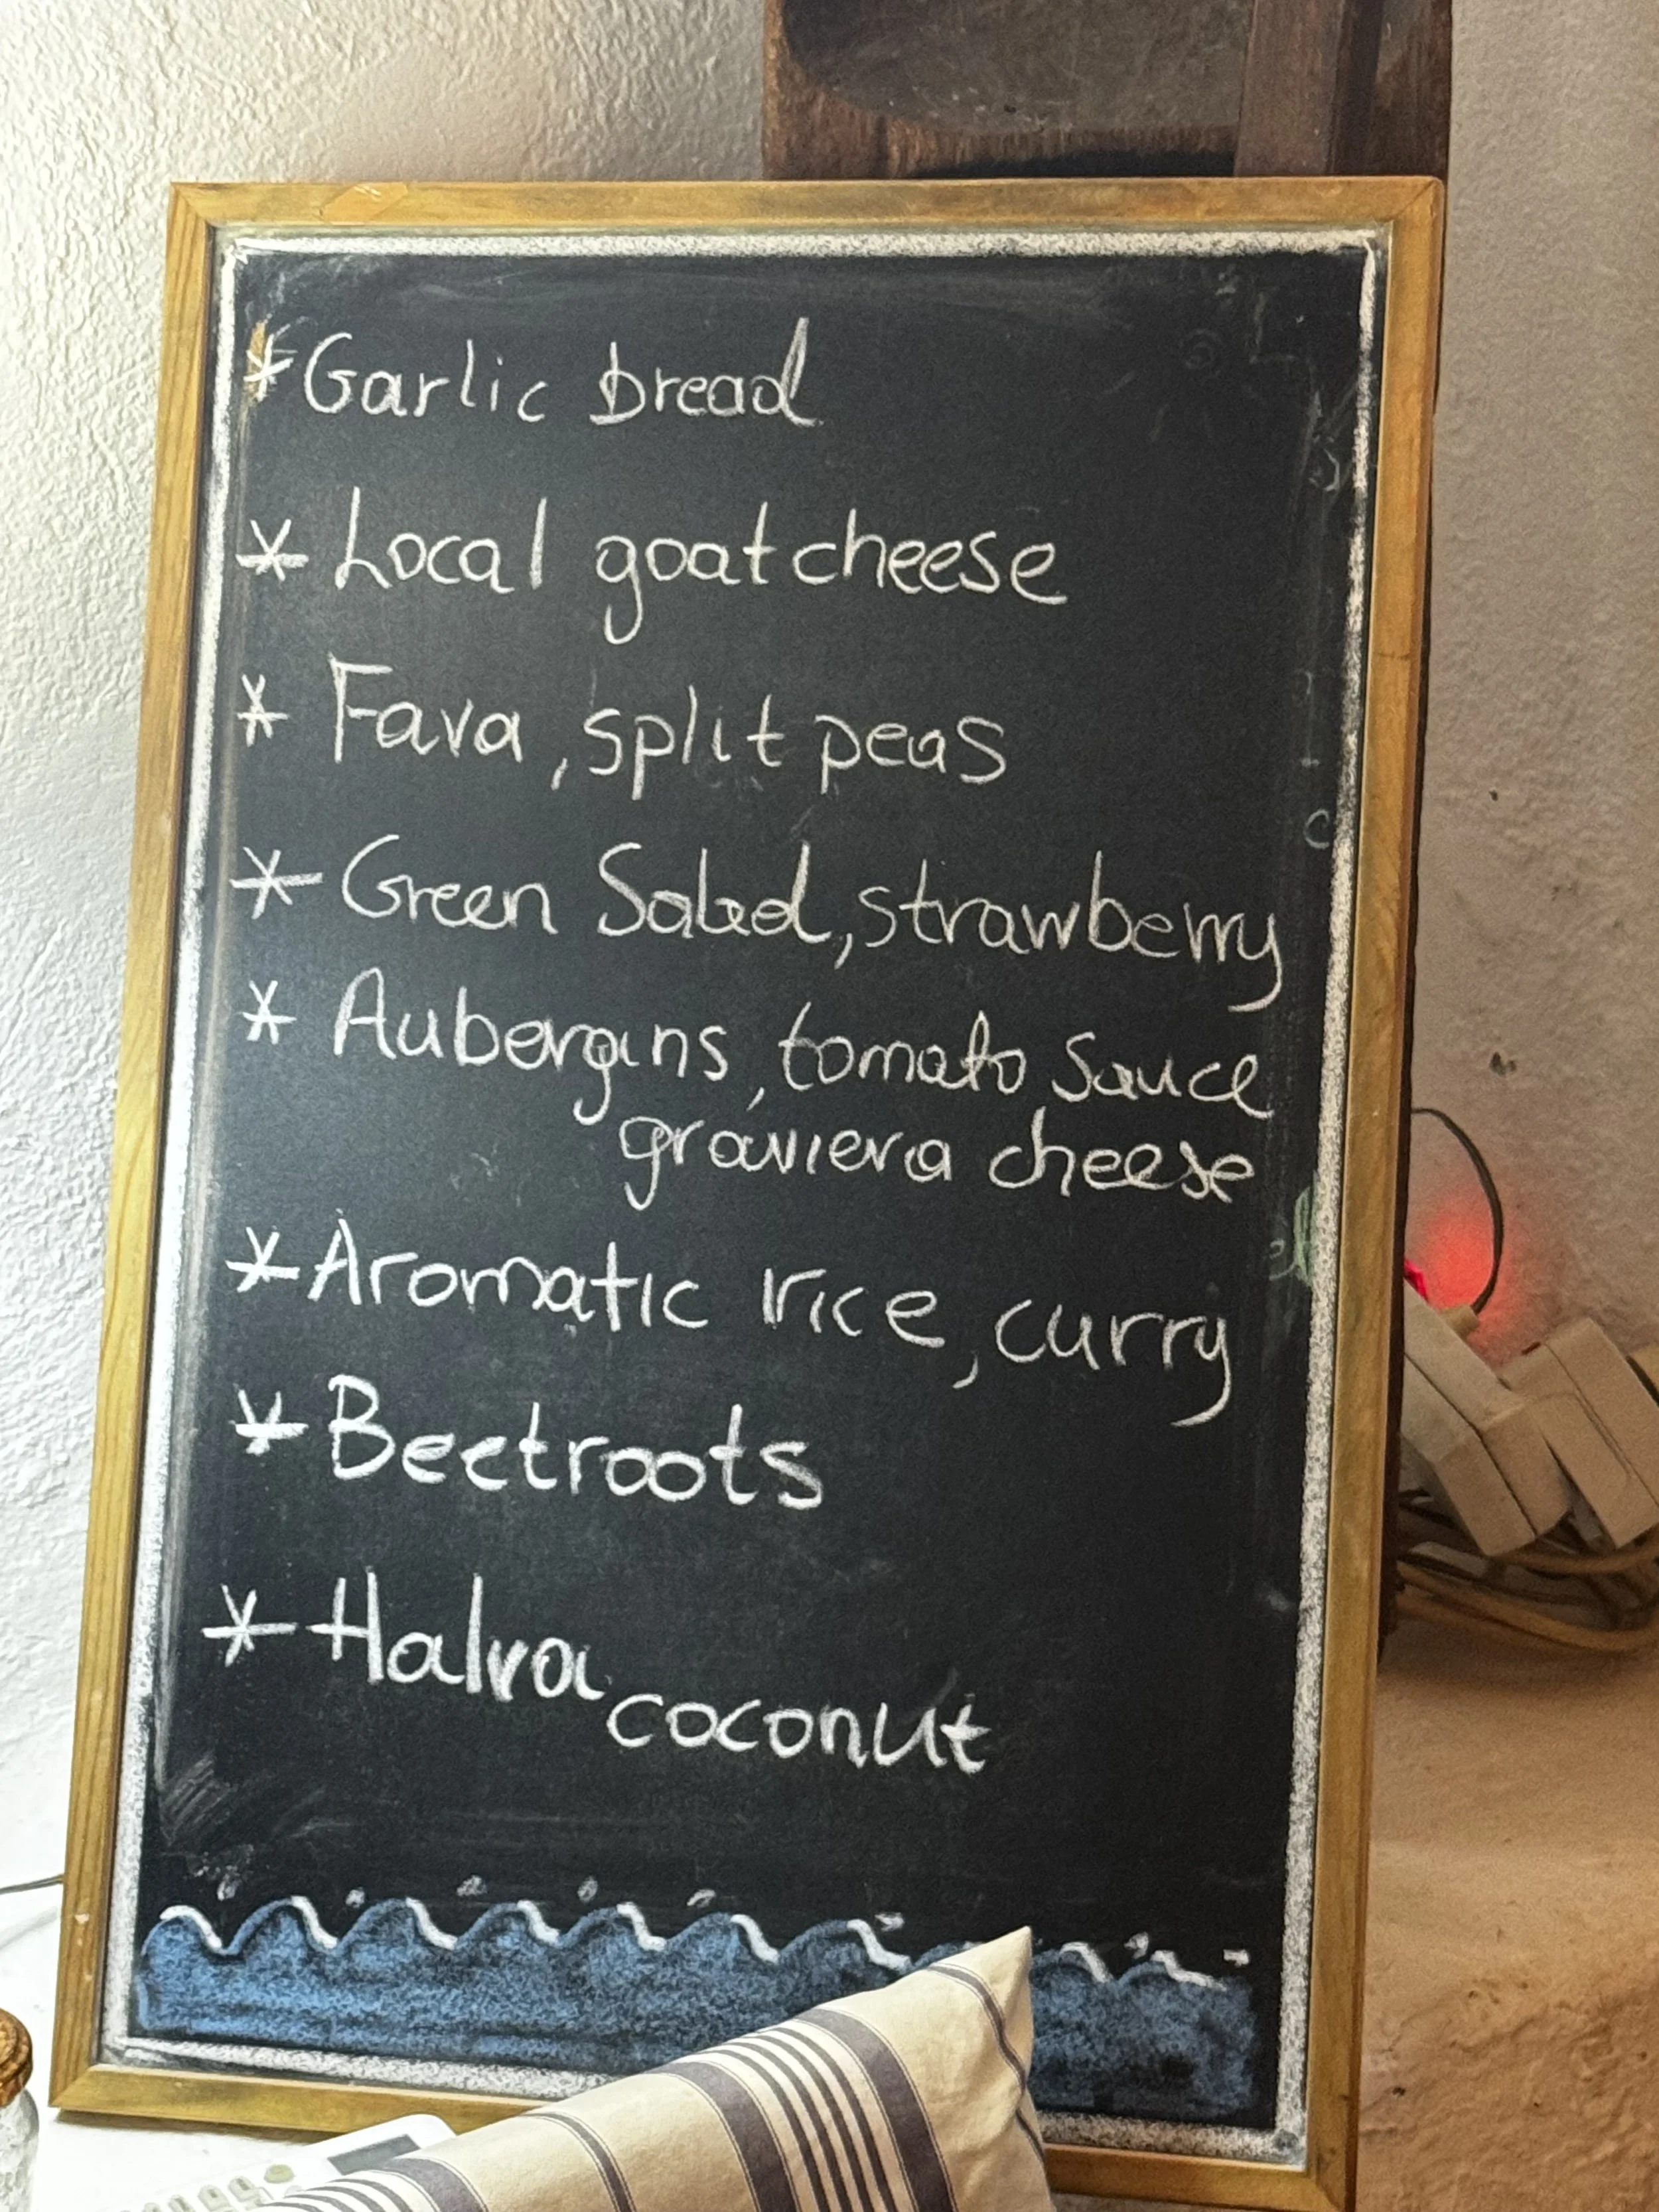 * Garlic bread
* Local goat cheese
* Fava, split peas
* Green Salad, strawberry
* Aubergins, tomato sauce
graviera cheese
* Aromatic rice, curry
* Beetroots
* Halva
coconut